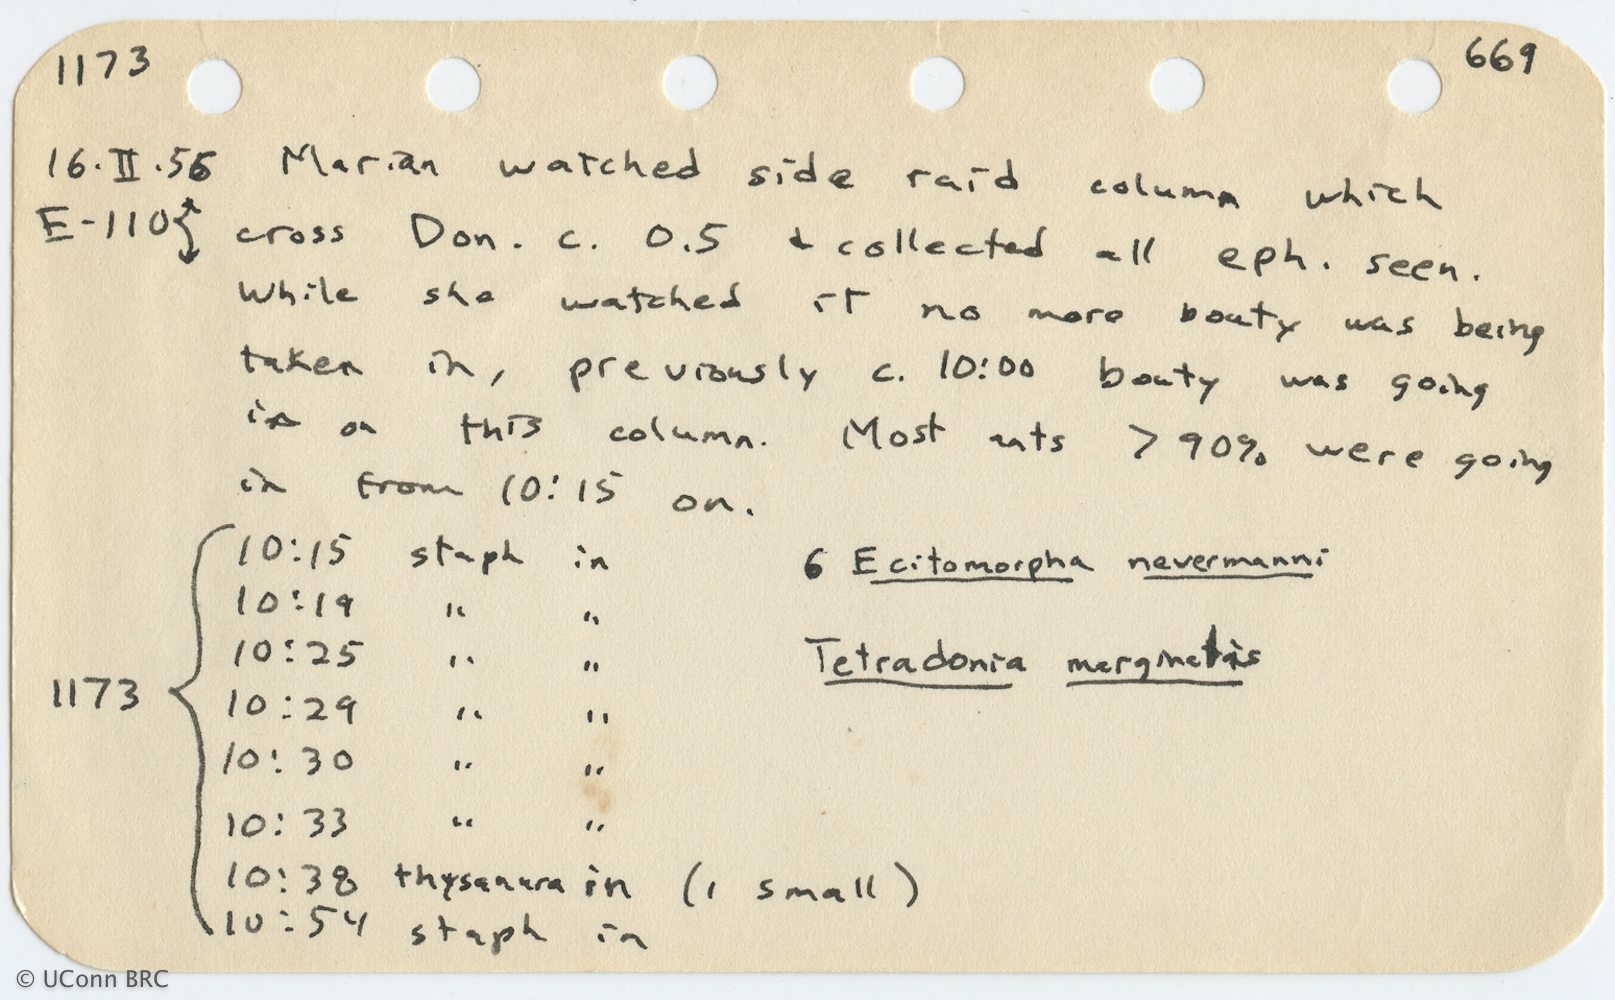 1173 669
16.II.56 Marian watched side raid column which
E-110 cross Don. c. 0.5 & collected all eph. seen.
While she watched it no more booty was being
taken in, previously c. 10:00 booty was going
in on this column. Most ants > 90% were going
in from 10:15 on.
10:15 staph in 6 Ecitomorpha nevermanni
10:19 " "
10:25 " " Tetradonia marginalis
1173 10:29 " "
10:30 " "
10:33 " "
10:38 thysanura in (1 small)
10:54 staph in
© UConn BRC